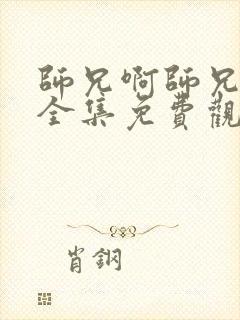 師兄啊師兄
全集免費觀
肖鋼